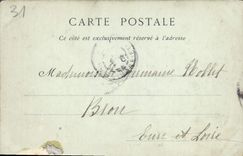 31
CARTE POSTALE
Ce côté est exclusivement réservé à l'adresse
Mademoiselle Germaine
Brou
Eure et Loire